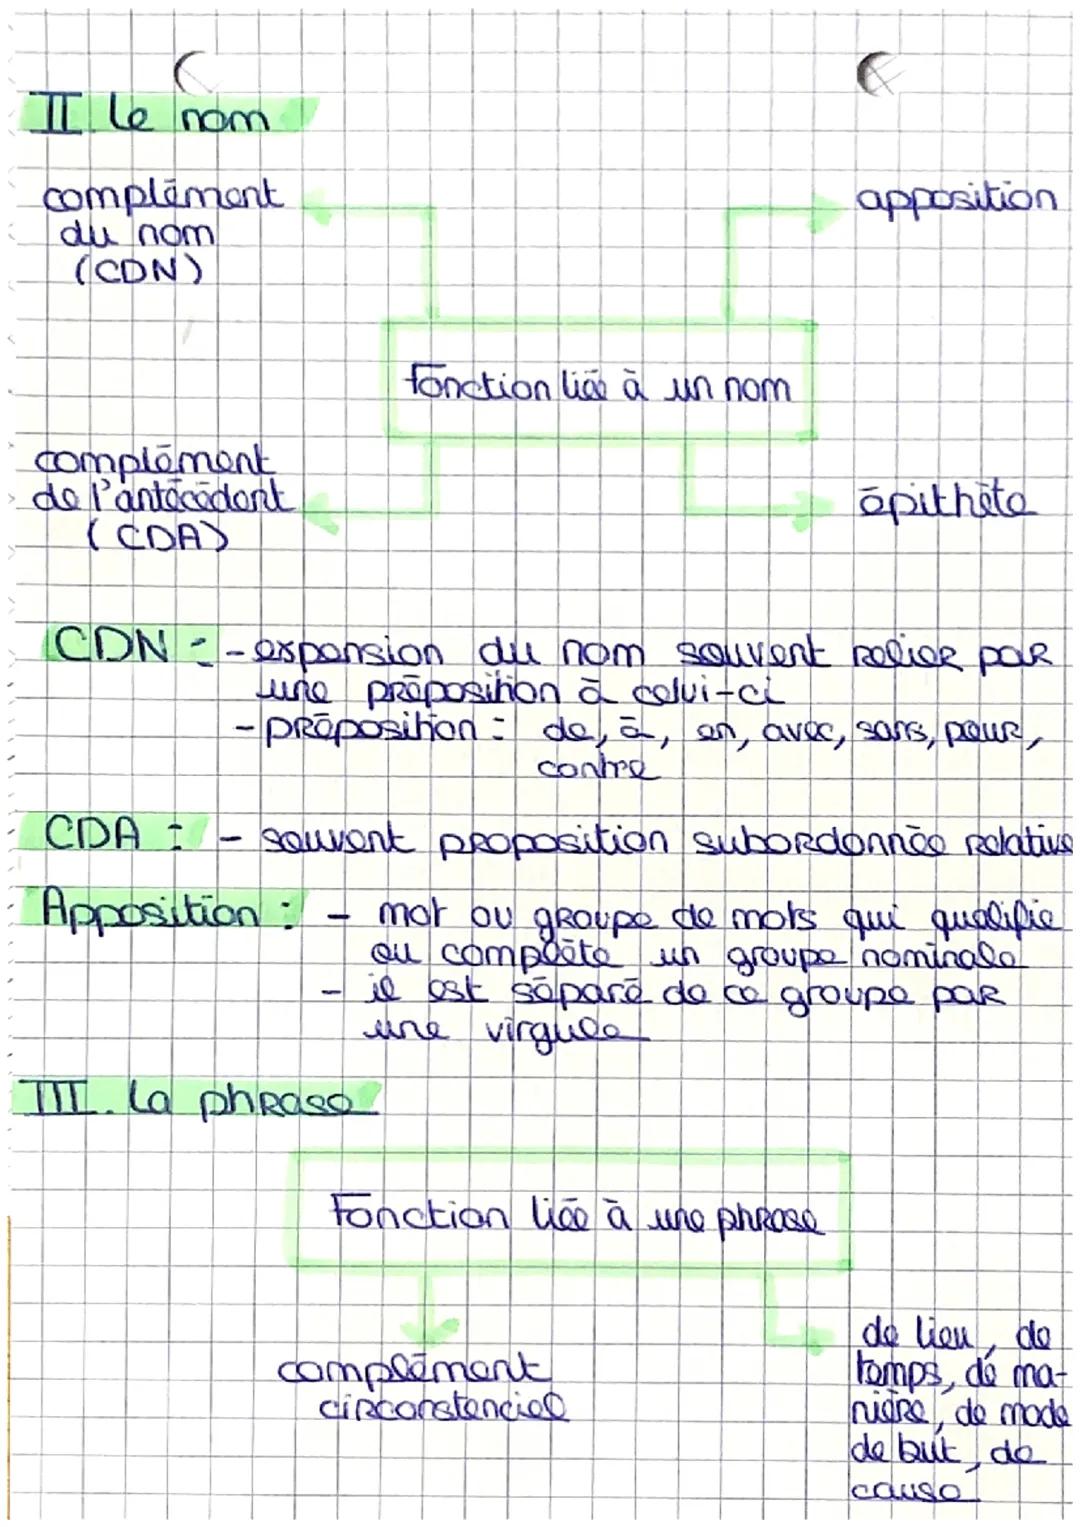 II le nom
complément
du nom
(CDN)
apposition
fonction liée à un nom
complément
de l'antécédent
(CDA)
épithète
CDN : - expansion du nom souvent relier par
une préposition à celui-ci
- préposition : de, à, en, avec, sans, pour,
contre
CDA : - souvent proposition subordonnée relative
Apposition : - mot ou groupe de mots qui qualifie
ou complète un groupe nominale
- il est séparé de ce groupe par
une virgule
III. La phrase
Fonction liée à une phrase
complément
circonstenciel
de lieu, de
temps, de ma-
nière, de mode
de but, de
cause